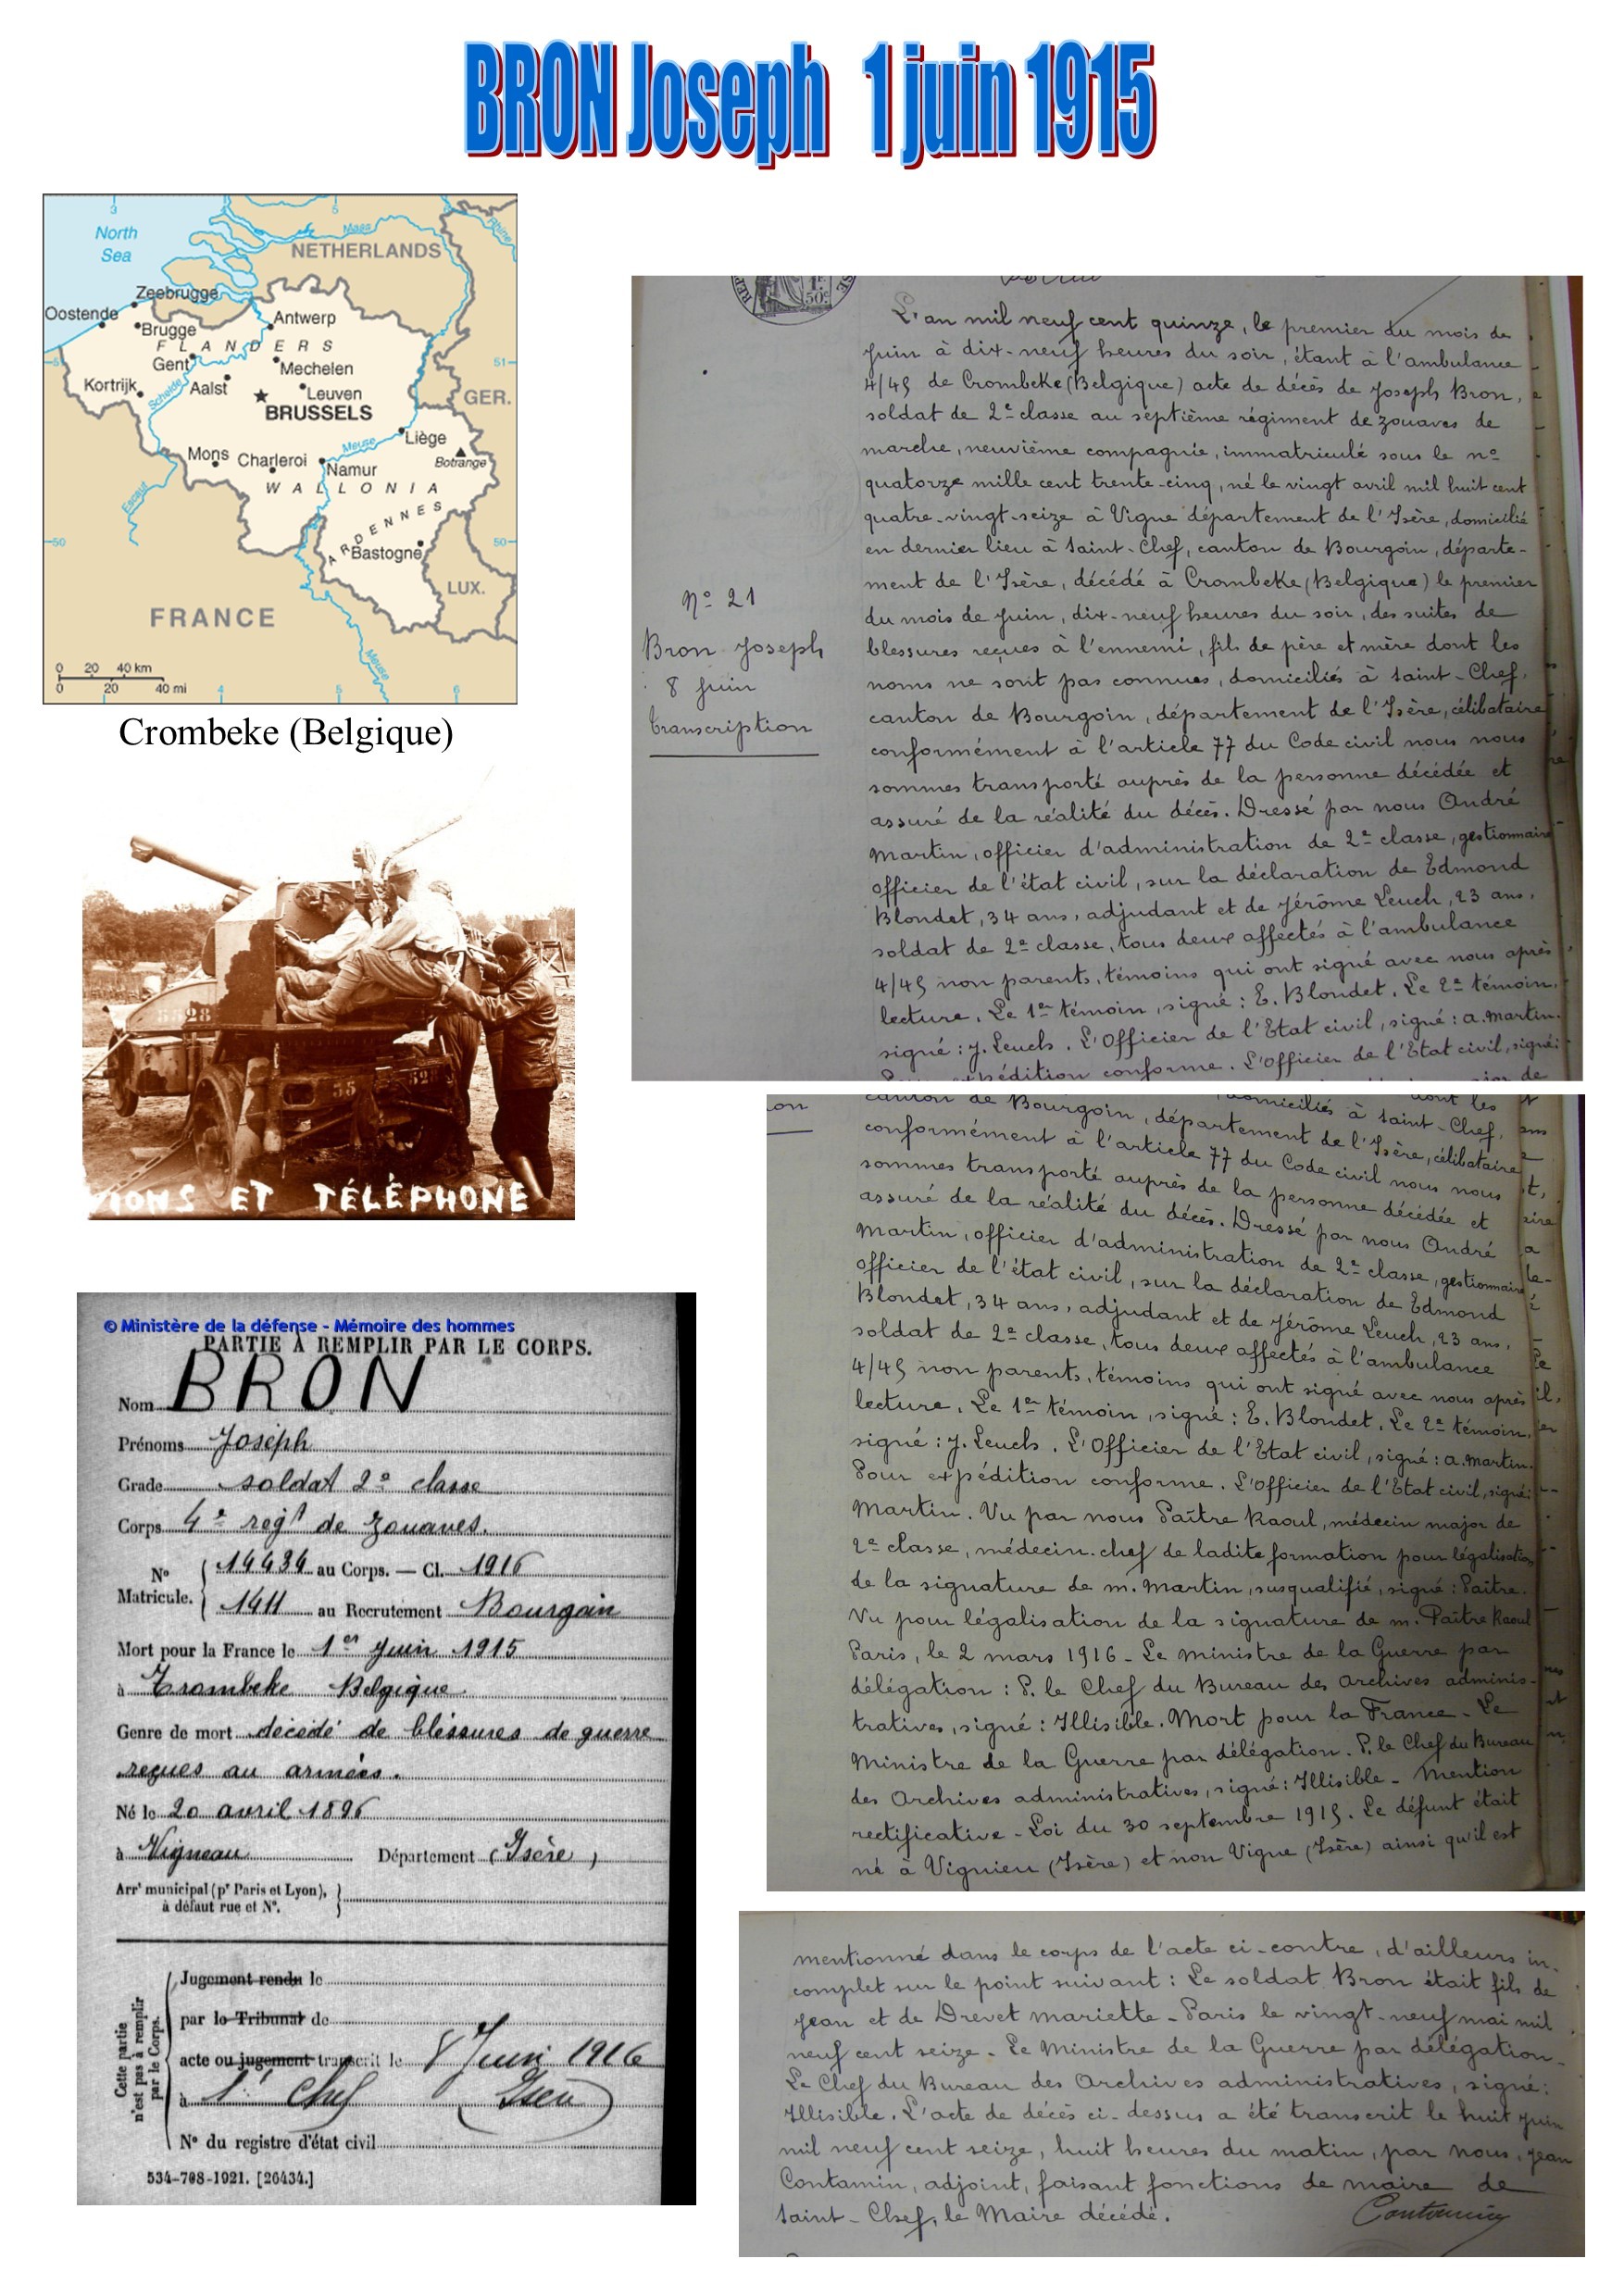 BRON Joseph 1 juin 1915
North
Sea
NETHERLANDS
Maas
Rhine
Zeebrugge
Oostende
Brugge
Antwerp
FLANDERS
Gent
Mechelen
Kortrijk
Aalst
Leuven
Schelde
BRUSSELS
GER.
Liège
Meuse
Mons
Charleroi
Namur
Botrange
WALLONIA
Escaut
ARDENNES
Bastogne
LUX.
FRANCE
Meuse
0 20 40 km
0 20 40 mi
3
4
5
6
51
50
Crombeke (Belgique)
5528
55 528
IONS ET TÉLÉPHONE
Nº 21
Bron Joseph
8 Juin
transcription
L'an mil neuf cent quinze, le premier du mois de
Juin à dix-neuf heures du soir, étant à l'ambulance
4/45 de Crombeke (Belgique) acte de décès de Joseph Bron,
soldat de 2e classe au septième régiment de zouaves de
marche, neuvième compagnie, immatriculé sous le nº
quatorze mille cent trente-cinq, né le vingt avril mil huit cent
quatre-vingt-seize à Vigne département de l'Isère, domicilié
en dernier lieu à Saint-Chef, canton de Bourgoin, départe-
ment de l'Isère, décédé à Crombeke (Belgique) le premier
du mois de Juin, dix-neuf heures du soir, des suites de
blessures reçues à l'ennemi, fils de père et mère dont les
noms ne sont pas connues, domiciliés à Saint-Chef,
canton de Bourgoin, département de l'Isère, célibataire
conformément à l'article 77 du Code civil nous nous
sommes transporté auprès de la personne décédée et
assuré de la réalité du décès. Dressé par nous André
Martin, officier d'administration de 2e classe, gestionnaire
officier de l'état civil, sur la déclaration de Edmond
Blondet, 34 ans, adjudant et de Jérôme Leuch, 23 ans,
soldat de 2e classe, tous deux affectés à l'ambulance
4/45 non parents, témoins qui ont signé avec nous après
lecture. Le 1er témoin, signé : E. Blondet. Le 2e témoin,
signé : J. Leuch. L'Officier de l'Etat civil, signé : A. Martin.
Pour expédition conforme. L'Officier de l'Etat civil, signé :
canton de Bourgoin, département de l'Isère, célibataire
domiciliés à Saint-Chef,
conformément à l'article 77 du Code civil nous nous
sommes transporté auprès de la personne décédée et
assuré de la réalité du décès. Dressé par nous André
Martin, officier d'administration de 2e classe, gestionnaire
officier de l'état civil, sur la déclaration de Edmond
Blondet, 34 ans, adjudant et de Jérôme Leuch, 23 ans,
soldat de 2e classe, tous deux affectés à l'ambulance
4/45 non parents, témoins qui ont signé avec nous après
lecture. Le 1er témoin, signé : E. Blondet. Le 2e témoin,
signé : J. Leuch. L'Officier de l'Etat civil, signé : A. Martin.
Pour expédition conforme. L'Officier de l'Etat civil, signé :
Martin. Vu par nous Paître Raoul, médecin major de
2e classe, médecin-chef de ladite formation pour légalisation
de la signature de M. Martin, susqualifié, signé : Paître.
Vu pour légalisation de la signature de M. Paître Raoul
Paris, le 2 mars 1916 - Le Ministre de la Guerre par
délégation : P. le Chef du Bureau des Archives adminis-
tratives, signé : Illisible. Mort pour la France - Le
Ministre de la Guerre par délégation. P. le Chef du Bureau
des Archives administratives, signé : Illisible - Mention
rectificative - Loi du 30 septembre 1915. Le défunt était
né à Vignieu (Isère) et non Vigne (Isère) ainsi qu'il est
mentionné dans le corps de l'acte ci-contre, d'ailleurs in-
complet sur le point suivant : Le soldat Bron était fils de
Jean et de Drevet Mariette - Paris le vingt-neuf mai mil
neuf cent seize - Le Ministre de la Guerre par délégation -
Le Chef du Bureau des Archives administratives, signé :
Illisible. L'acte de décès ci-dessus a été transcrit le huit Juin
mil neuf cent seize, huit heures du matin, par nous, Jean
Contamin, adjoint, faisant fonctions de maire de
Saint-Chef, le Maire décédé.
Contamin
© Ministère de la défense - Mémoire des hommes
PARTIE À REMPLIR PAR LE CORPS.
Nom BRON
Prénoms Joseph
Grade soldat 2e classe
Corps 4e regt de Zouaves.
Nº Matricule. { 14434 au Corps. — Cl. 1916
1411 au Recrutement Bourgoin
Mort pour la France le 1er Juin 1915
à Crombeke Belgique
Genre de mort décédé de bléssures de guerre
reçues au armées.
Né le 20 avril 1896
à Vigneau Département (Isère)
Arrt municipal (pr Paris et Lyon),
à défaut rue et Nº.
Cette partie
n'est pas à remplir
par le Corps.
Jugement rendu le
par le Tribunal de
acte ou jugement transcrit le 8 Juin 1916
à St Chef Isère
Nº du registre d'état civil
534-708-1921. [26434.]